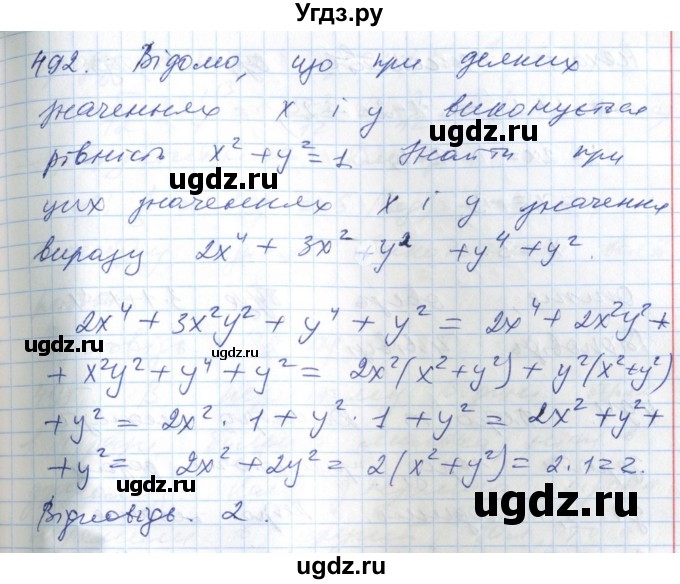 Угдз.ру
492. Відомо, що при деяких
значеннях x і y виконується
рівність x² + y² = 1. Знайти при
цих значеннях x і y значення
виразу 2x⁴ + 3x² + y² + y⁴ + y².
2x⁴ + 3x²y² + y⁴ + y² = 2x⁴ + 2x²y² +
+ x²y² + y⁴ + y² = 2x²(x² + y²) + y²(x² + y²)
+ y² = 2x² · 1 + y² · 1 + y² = 2x² + y² +
+ y² = 2x² + 2y² = 2(x² + y²) = 2 · 1 = 2.
Відповідь. 2.
ugdz.ru
ugdz.ru
ugdz.ru
ugdz.ru
ugdz.ru
ugdz.ru
ugdz.ru
ugdz.ru
ugdz.ru